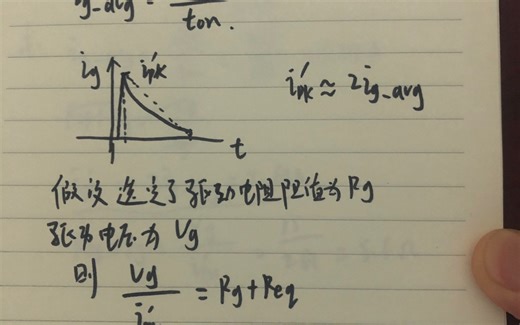 ig_avg =
ton.
ig i'pk i'pk ≈ 2ig_avg
t
假设选定了驱动电阻阻值为Rg
驱动电压为Vg
则 Vg
= Rg+Req